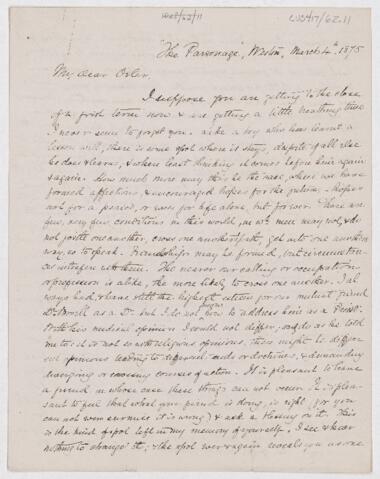 CUS417/62.11
"The Parsonage", Weston, March 4th 1875
My dear Osler,
I suppose you are getting to the close
of a first term now & are getting a little breathing time
I never seem to forget you. Like a boy who has learnt a
lesson well, there is some spot where it stays, despite of all else
he does & learns, & when least thinking it comes before him again
& again. How much more may this be the case where we have
formed affections, & encouraged hopes for the future, & hopes
not for a period, or even for life alone, but for ever. There are
few, very few conditions in this world, as we men may not, & do
not jostle one another, cross one another's path, get into one another's
way, so to speak. Friendships may be formed, but circumstan-
ces with them. The nearer our calling or occupation
or profession is alike, the more likely to cross one another. I al
ways had, & have still the highest esteem for our mutual friend
Dr Bovell as a Dr. but I do not know how to address him as a Priest.
With his medical opinion I would not differ, and as he told
me to it is not so with religious opinions, there might be differ
ent opinions leading to different ends or doctrines, & demanding
changing or crossing courses of action. It is pleasant to have
a friend in whose case these things can not occur. It is plea-
sant to feel that what your friend is doing, is right (for you
can not even surmise it is wrong) & ask a blessing on it. This
is the kind of spot left in my memory of yourself. I see & hear
nothing to change it; & the spot ever & again reveals you as one